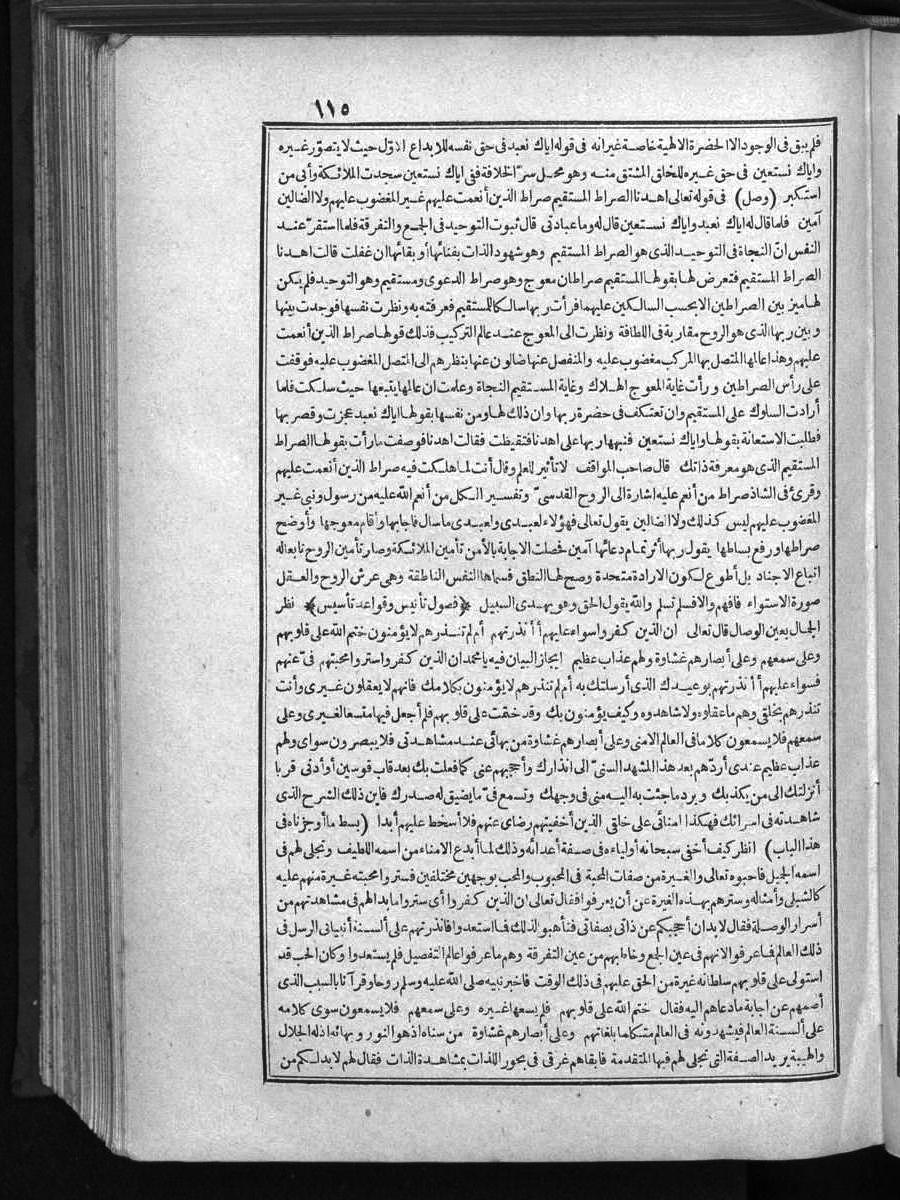 ١١٥
فلم يبق في الوجود الا الحضرة الالهية خاصة غير انه في قوله اياك نعبد في حق نفسه للابداع الاول حيث لا يتصور غيره
واياك نستعين في حق غيره للخلق المشتق منه وهو محل سر الخلافة ففي اياك نستعين سجدت الملائكة وأبى من
استكبر (وصل) في قوله تعالى اهدنا الصراط المستقيم صراط الذين أنعمت عليهم غير المغضوب عليهم ولا الضالين
آمين فلما قال له اياك نعبد واياك نستعين قال له وما عبادتى قال ثبوت التوحيد في الجمع والتفرقة فلما استقر عند
النفس ان النجاة في التوحيد الذى هو الصراط المستقيم وهو شهود الذات بفنائها أو بقائها ان غفلت قالت اهدنا
الصراط المستقيم فتعرض لها بقولها المستقيم صراطان معوج وهو صراط الدعوى ومستقيم وهو التوحيد فلم يكن
لها ميز بين الصراطين الا بحسب السالكين عليهما فرأت ربها سالكا للمستقيم فعرفته به ونظرت نفسها فوجدت بينها
وبين ربها الذى هو الروح مقاربة في اللطافة ونظرت الى المعوج عند عالم التركيب فذلك قولها صراط الذين أنعمت
عليهم وهذا عالمها المتصل بها المركب مغضوب عليه والمنفصل عنها ضالون عنها بنظرهم الى المتصل المغضوب عليه فوقفت
على رأس الصراطين ورأت غاية المعوج الهلاك وغاية المستقيم النجاة وعلمت ان عالمها يتبعها حيث سلكت فلما
أرادت السلوك على المستقيم وان تعتكف في حضرة ربها وان ذلك لها ومن نفسها بقولها اياك نعبد عجزت وقصر بها
فطلبت الاستعانة بقولها واياك نستعين فنبهها ربها على اهدنا فتيقظت فقالت اهدنا فوصفت ما رأت بقولها الصراط
المستقيم الذى هو معرفة ذاتك قال صاحب المواقف لا تأتير للعلم وقال أنت لما هلكت فيه صراط الذين أنعمت عليهم
وقرئ في الشاذ صراط من أنعم عليه اشارة الى الروح القدسى وتفسير الكل من أنعم الله عليه من رسول ونبى غير
المغضوب عليهم ليس كذلك ولا الضالين يقول تعالى فهؤلاء لعبدى ولعبدى ما سأل فأجابها وأقام معوجها وأوضح
صراطها ورفع بساطها يقول ربها أثر تمام دعائها آمين فحصلت الاجابة بالأمن تأمين الملائكة وصار تأمين الروح تابعا له
اتباع الاجناد بل أطوع لكون الارادة متحدة وصح لها النطق فسماها النفس الناطقة وهى عرش الروح والعقل
صورة الاستواء فافهم والافسلم تسلم والله يقول الحق وهو يهدى السبيل ﴿فصول تأنيس وقواعد تأسيس﴾ نظر
الجمال بعين الوصال قال تعالى ان الذين كفروا سواء عليهم أأنذرتهم أم لم تنذرهم لا يؤمنون ختم الله على قلوبهم
وعلى سمعهم وعلى أبصارهم غشاوة ولهم عذاب عظيم ايجاز البيان فيه يا محمد ان الذين كفروا ستروا محبتهم فىّ عنهم
فسواء عليهم أأنذرتهم بوعيدك الذى أرسلتك به أم لم تنذرهم لا يؤمنون بكلامك فانهم لا يعقلون غيرى وأنت
تنذرهم بخلقى وهم ما عقلوه ولا شاهدوه وكيف يؤمنون بك وقد ختمت على قلوبهم فلم أجعل فيها متسعا لغيرى وعلى
سمعهم فلا يسمعون كلاما في العالم الا منى وعلى أبصارهم غشاوة من بهائى عند مشاهدتى فلا يبصرون سواى ولهم
عذاب عظيم عندى أردّهم بعد هذا المشهد السنىّ الى انذارك وأحجبهم عنى كما فعلت بك بعد قاب قوسين أو أدنى قربا
أنزلتك الى من يكذبك ويرد ما جئت به اليه منى في وجهك وتسمع فىّ ما يضيق له صدرك فاين ذلك الشرح الذى
شاهدته في اسرائك فهكذا امنائى على خلقى الذين أخفيتهم رضاى عنهم فلا أسخط عليهم أبدا (بسط ما أوجزناه في
هذا الباب) انظر كيف أخفى سبحانه أولياءه في صفة أعدائه وذلك لما أبدع الامناء من اسمه اللطيف وتجلى لهم في
اسمه الجميل فأحبوه تعالى والغيرة من صفات المحبة في المحبوب والمحب بوجهين مختلفين فستروا محبته غيرة منهم عليه
كالشبلى وأمثاله وسترهم بهذه الغيرة عن أن يعرفوا فقال تعالى ان الذين كفروا أى ستروا ما بدا لهم في مشاهدتهم من
أسرار الوصلة فقال لابد ان أحجبكم عن ذاتى بصفاتى فتأهبوا لذلك فما استعدوا فانذرتهم على ألسنة أنبيائى الرسل في
ذلك العالم فما عرفوا لانهم في عين الجمع وخاطبهم من عين التفرقة وهم ما عرفوا عالم التفصيل فلم يستعدوا وكان الحب قد
استولى على قلوبهم سلطانه غيرة من الحق عليهم في ذلك الوقت فأخبر نبيه صلى الله عليه وسلم روحا وقرآنا بالسبب الذى
أصمهم عن اجابة ما دعاهم اليه فقال ختم الله على قلوبهم فلم يسعها غيره وعلى سمعهم فلا يسمعون سوى كلامه
على ألسنة العالم فيشهدونه في العالم متكلما بلغاتهم وعلى أبصارهم غشاوة من سناه اذ هو النور وبهائه اذ له الجلال
والهيبة يريد الصفة التى تجلى لهم فيها المتقدمة فابقاهم غرقى في بحور اللذات بمشاهدة الذات فقال لهم لابد لكم من